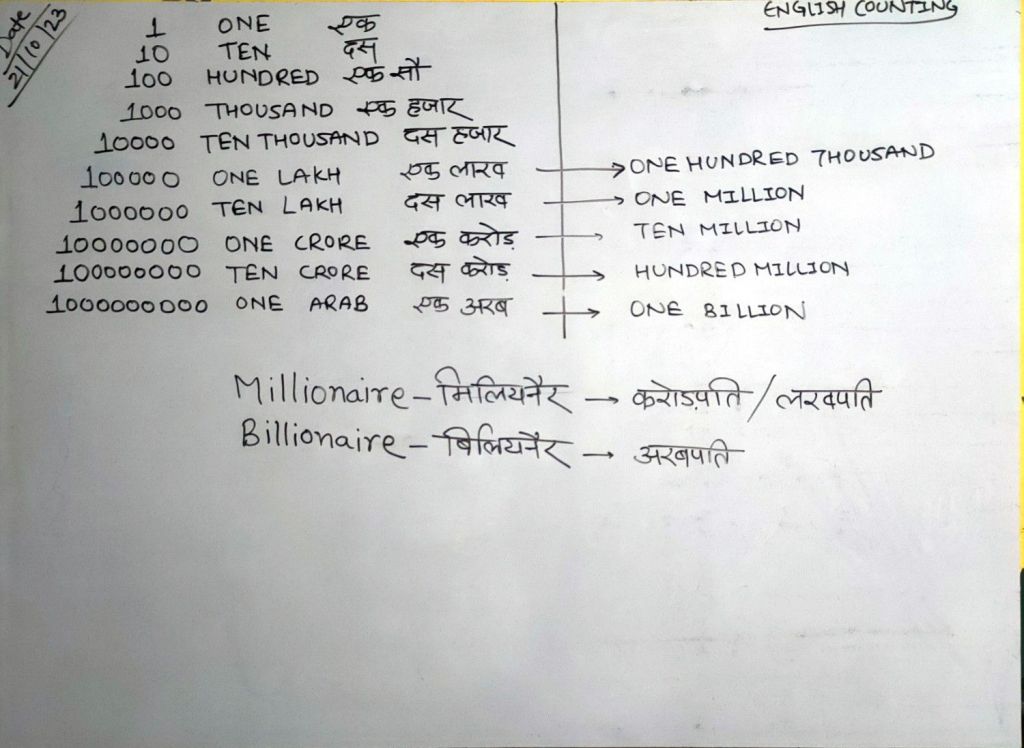 Date
21/10/23
ENGLISH COUNTING
1 ONE एक
10 TEN दस
100 HUNDRED एक सौ
1000 THOUSAND एक हजार
10000 TEN THOUSAND दस हजार
100000 ONE LAKH एक लाख → ONE HUNDRED THOUSAND
1000000 TEN LAKH दस लाख → ONE MILLION
10000000 ONE CRORE एक करोड़ → TEN MILLION
100000000 TEN CRORE दस करोड़ → HUNDRED MILLION
1000000000 ONE ARAB एक अरब → ONE BILLION
Millionaire - मिलियनैर → करोड़पति / लखपति
Billionaire - बिलियनैर → अरबपति